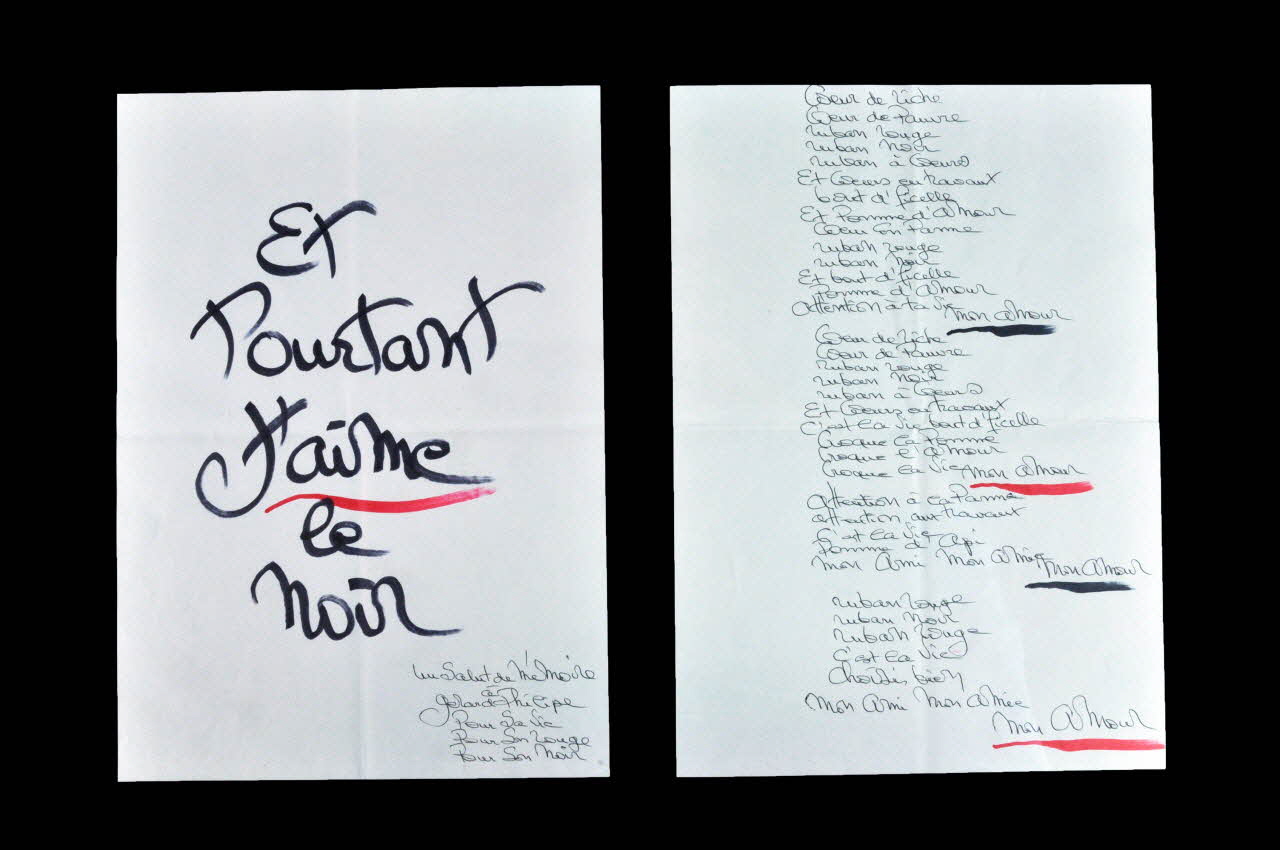 Et
Pourtant
J'aime
le
Noir
Un Salut de Mémoire
à
Gérard Philipe
Pour Sa Vie
Pour Son Rouge
Pour Son Noir
Coeur de Riche
Coeur de Pauvre
ruban rouge
ruban Noir
ruban à Coeurs
Et Coeurs en travaux
bout d'ficelle
Et Pomme d'Amour
Coeur En Panne
ruban rouge
ruban Noir
Et bout d'ficelle
Pomme d'Amour
Attention à ta Vie Mon Amour
Coeur de Riche
Coeur de Pauvre
ruban rouge
ruban Noir
ruban à Coeurs
Et Coeurs en travaux
C'est la Vie bout d'ficelle
Croque la Pomme
Croque l'Amour
Croque la Vie Mon Amour
Attention à la Panne
Attention aux travaux
C'est la Vie
Pomme d'Api
Mon Ami Mon Aimée Mon Amour
ruban rouge
ruban Noir
ruban rouge
C'est la Vie
Choisis bien
Mon Ami Mon Aimée
Mon Amour